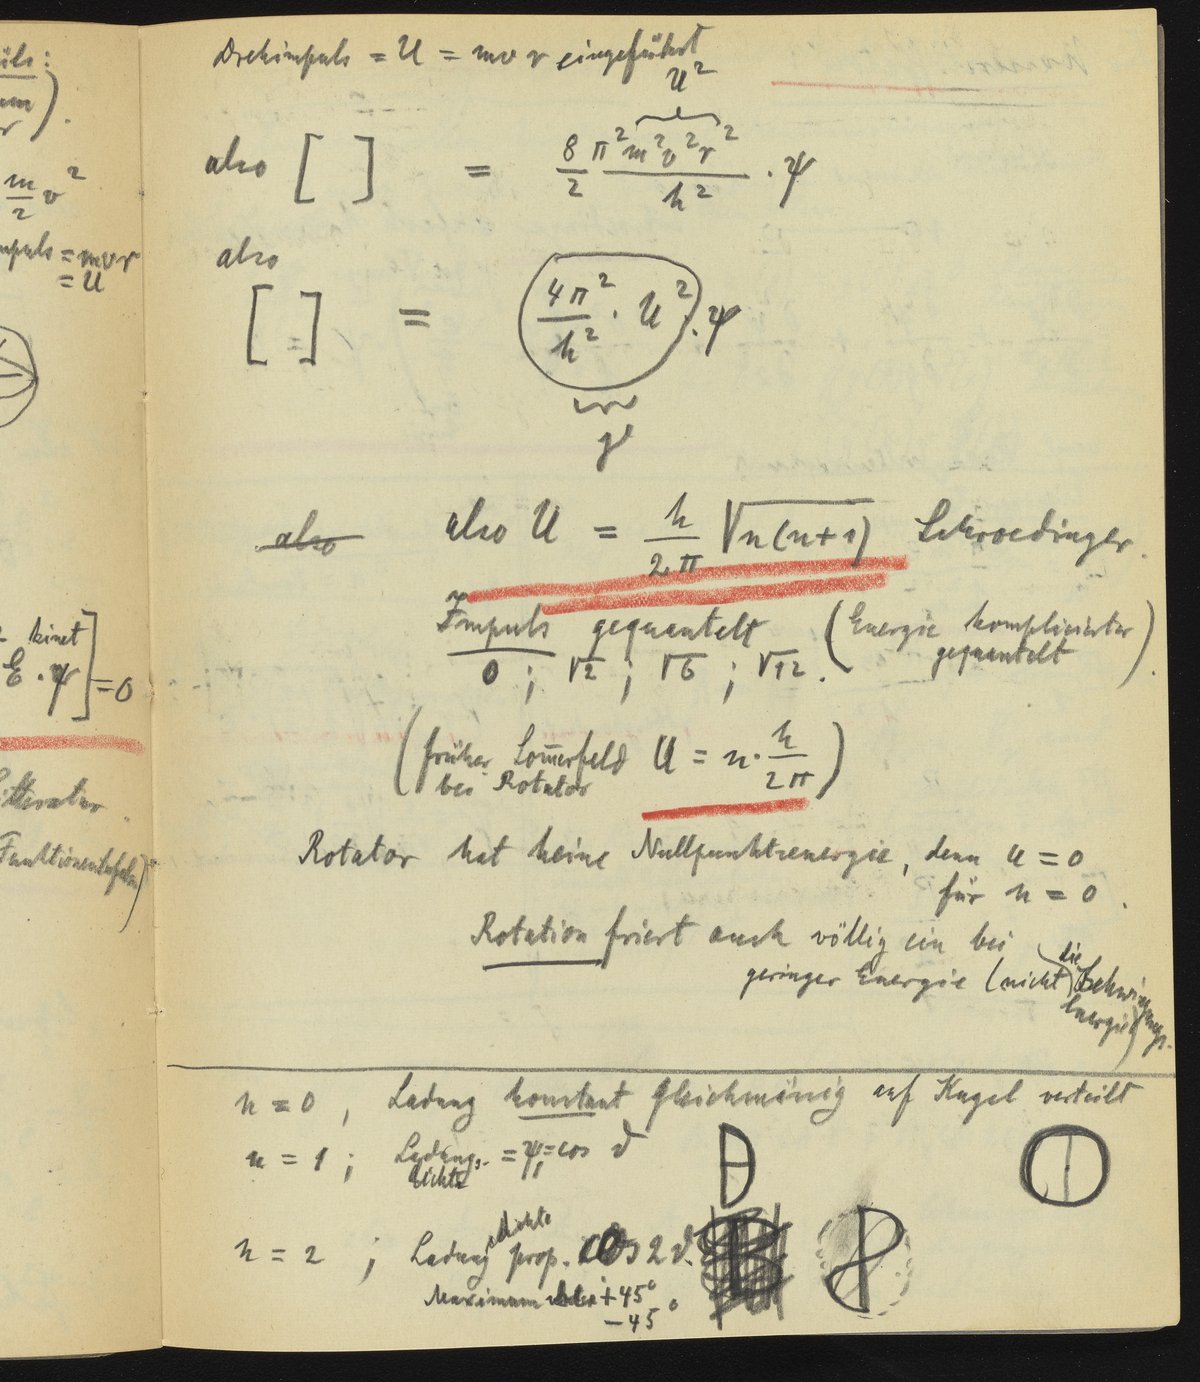 üls:
m/2 v²
mpuls = mvr
= U
kinet
E · ψ ] = 0
Litteratur
Funktionentafeln)
Drehimpuls = U = m v r eingeführt
U²
also [ ] = 8/2 π² m² v² r² / h² · ψ
also
[ ] = 4π²/h² · U² · ψ
γ
also also U = h/2π √n(n+1) Schroedinger.
Impuls gequantelt (Energie komplizierter
gequantelt).
0 ; √2 ; √6 ; √12.
(früher Som̅erfeld U = n · h/2π)
bei Rotator
Rotator hat keine Nullpunktsenergie, denn U = 0
für n = 0.
Rotation friert auch völlig ein bei
geringer Energie (nicht die Schwingungs-
energie)
n = 0, Ladung konstant gleichmässig auf Kugel verteilt
n = 1; Ladungs- = ψ₁ = cos ϑ
dichte
n = 2; Ladungsdichte prop. cos 2ϑ.
Maximum bei +45°
−45°